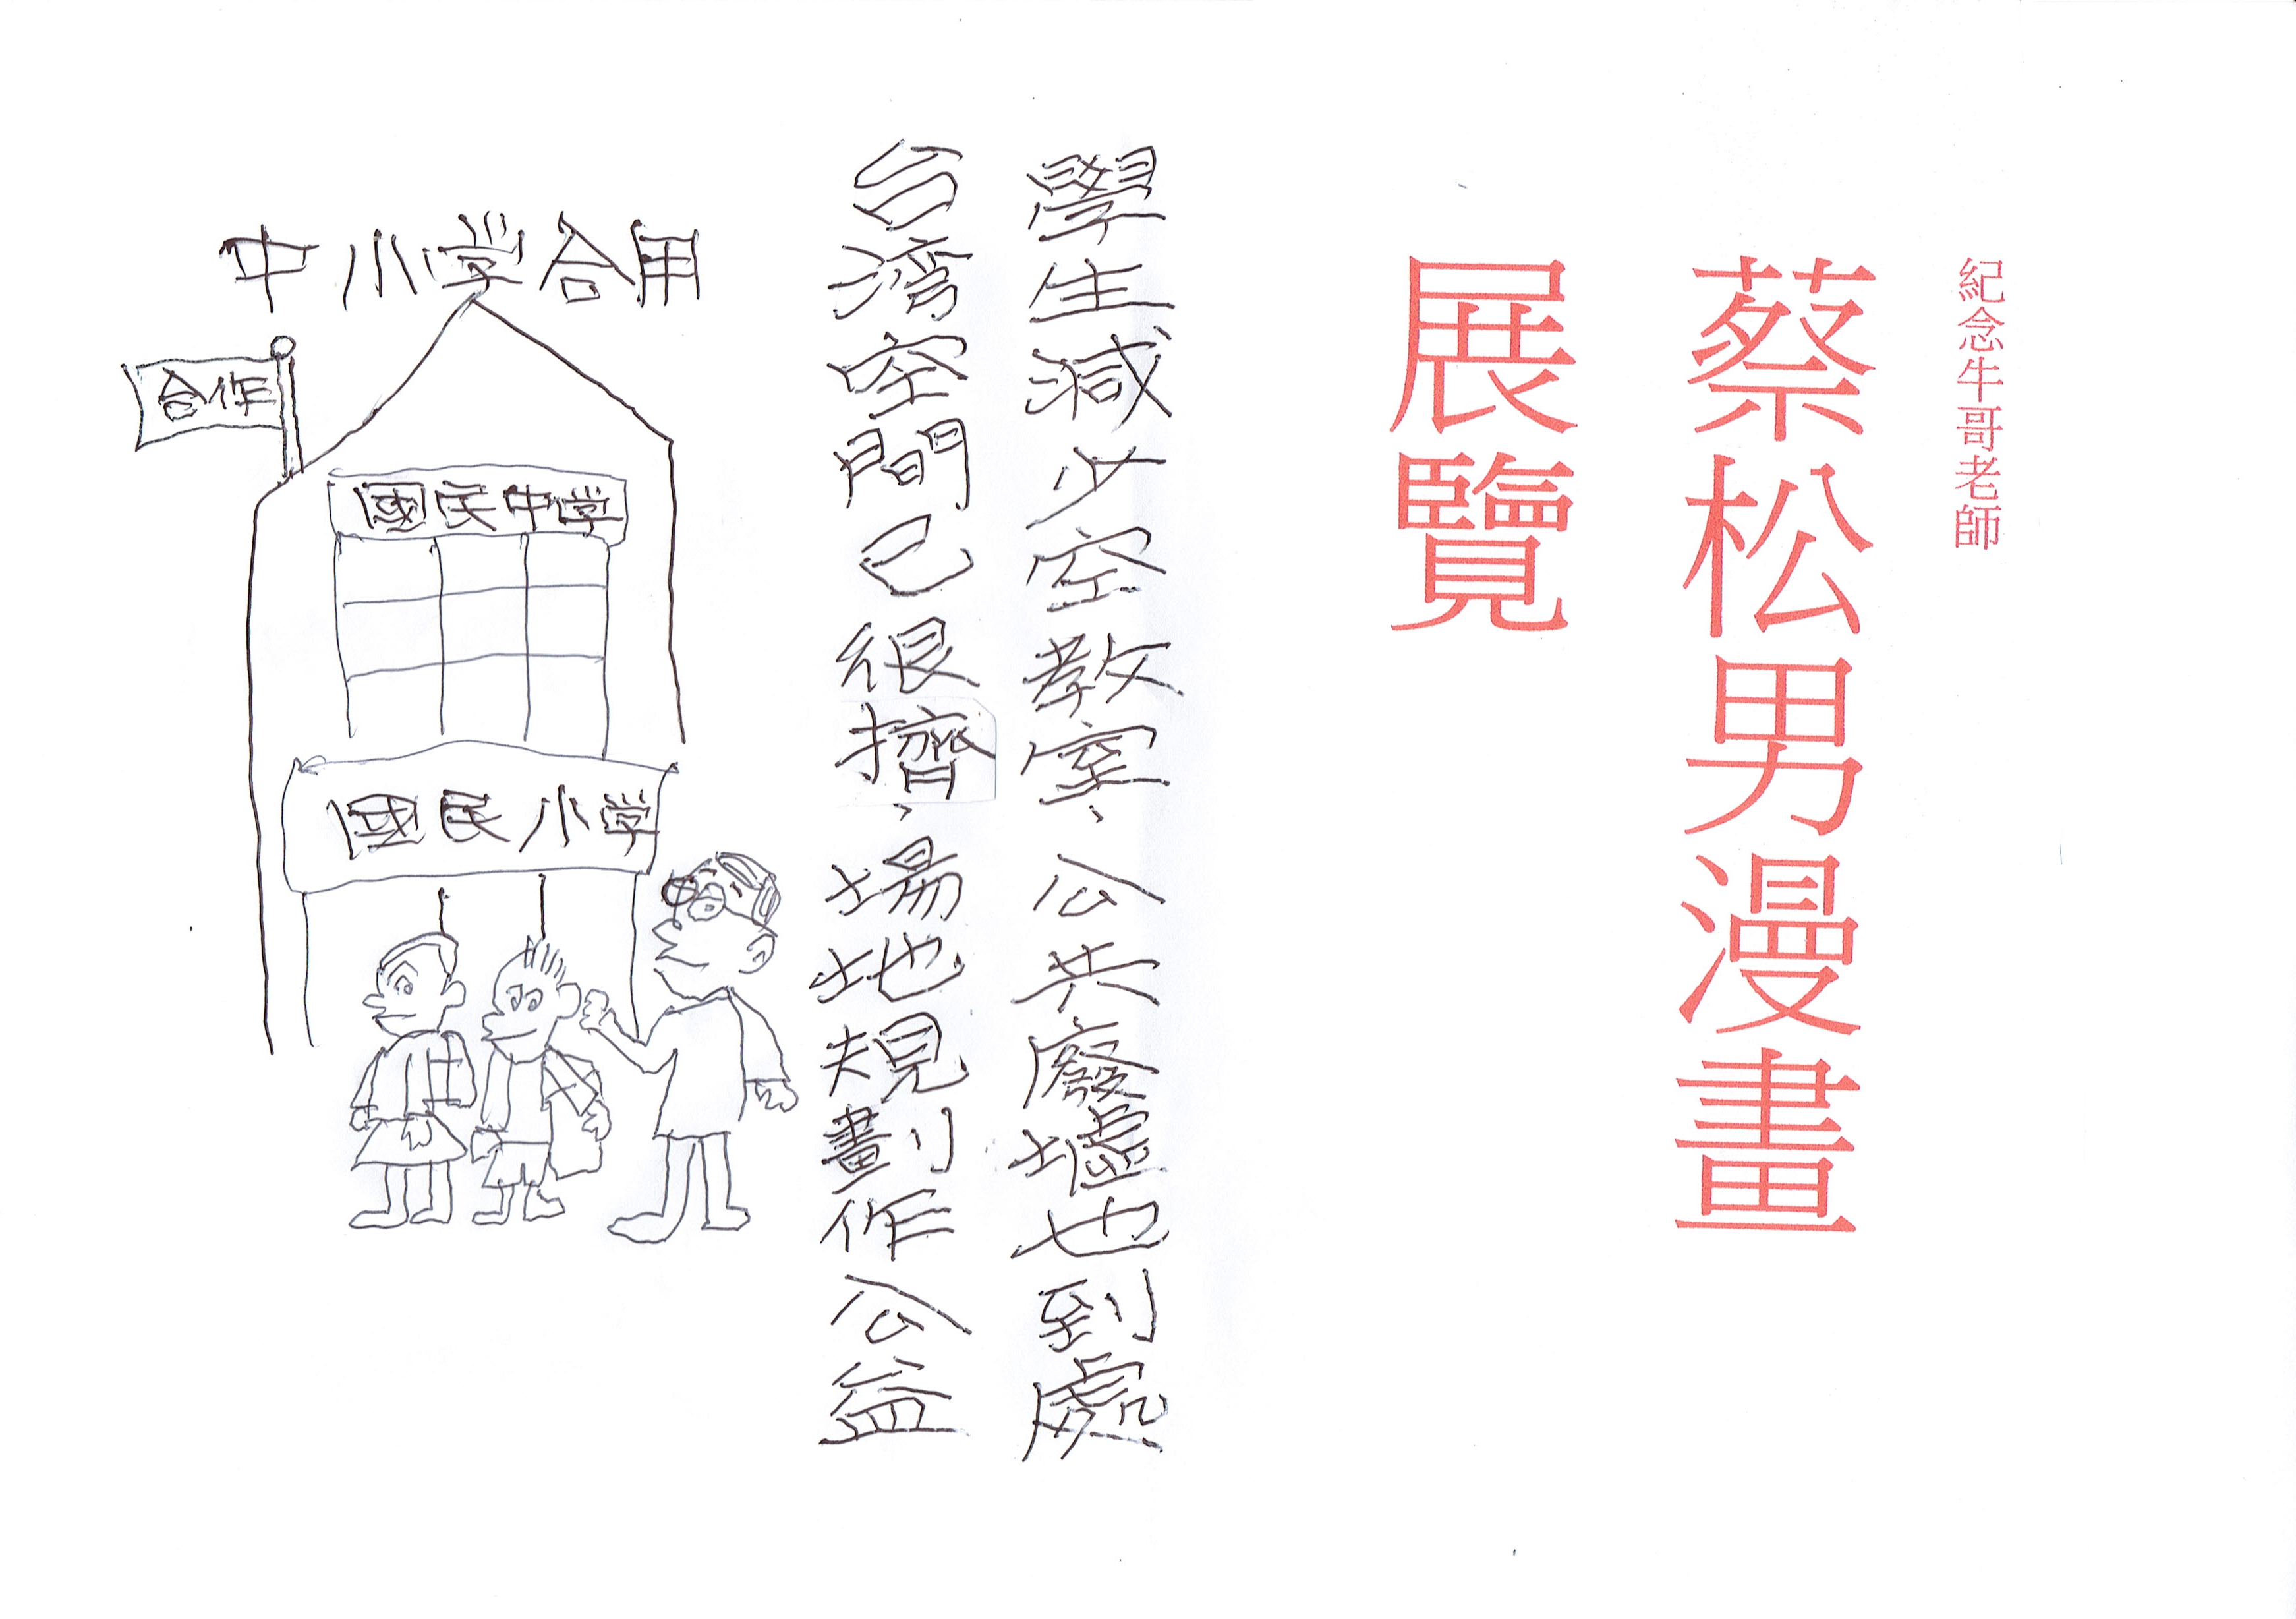 紀念牛哥老師
蔡松男漫畫
展覽
學生減少空教室、公共廢墟也到處
台湾空間已很擠、場地規劃作公益
中小学合用
合作
國民中学
國民小学